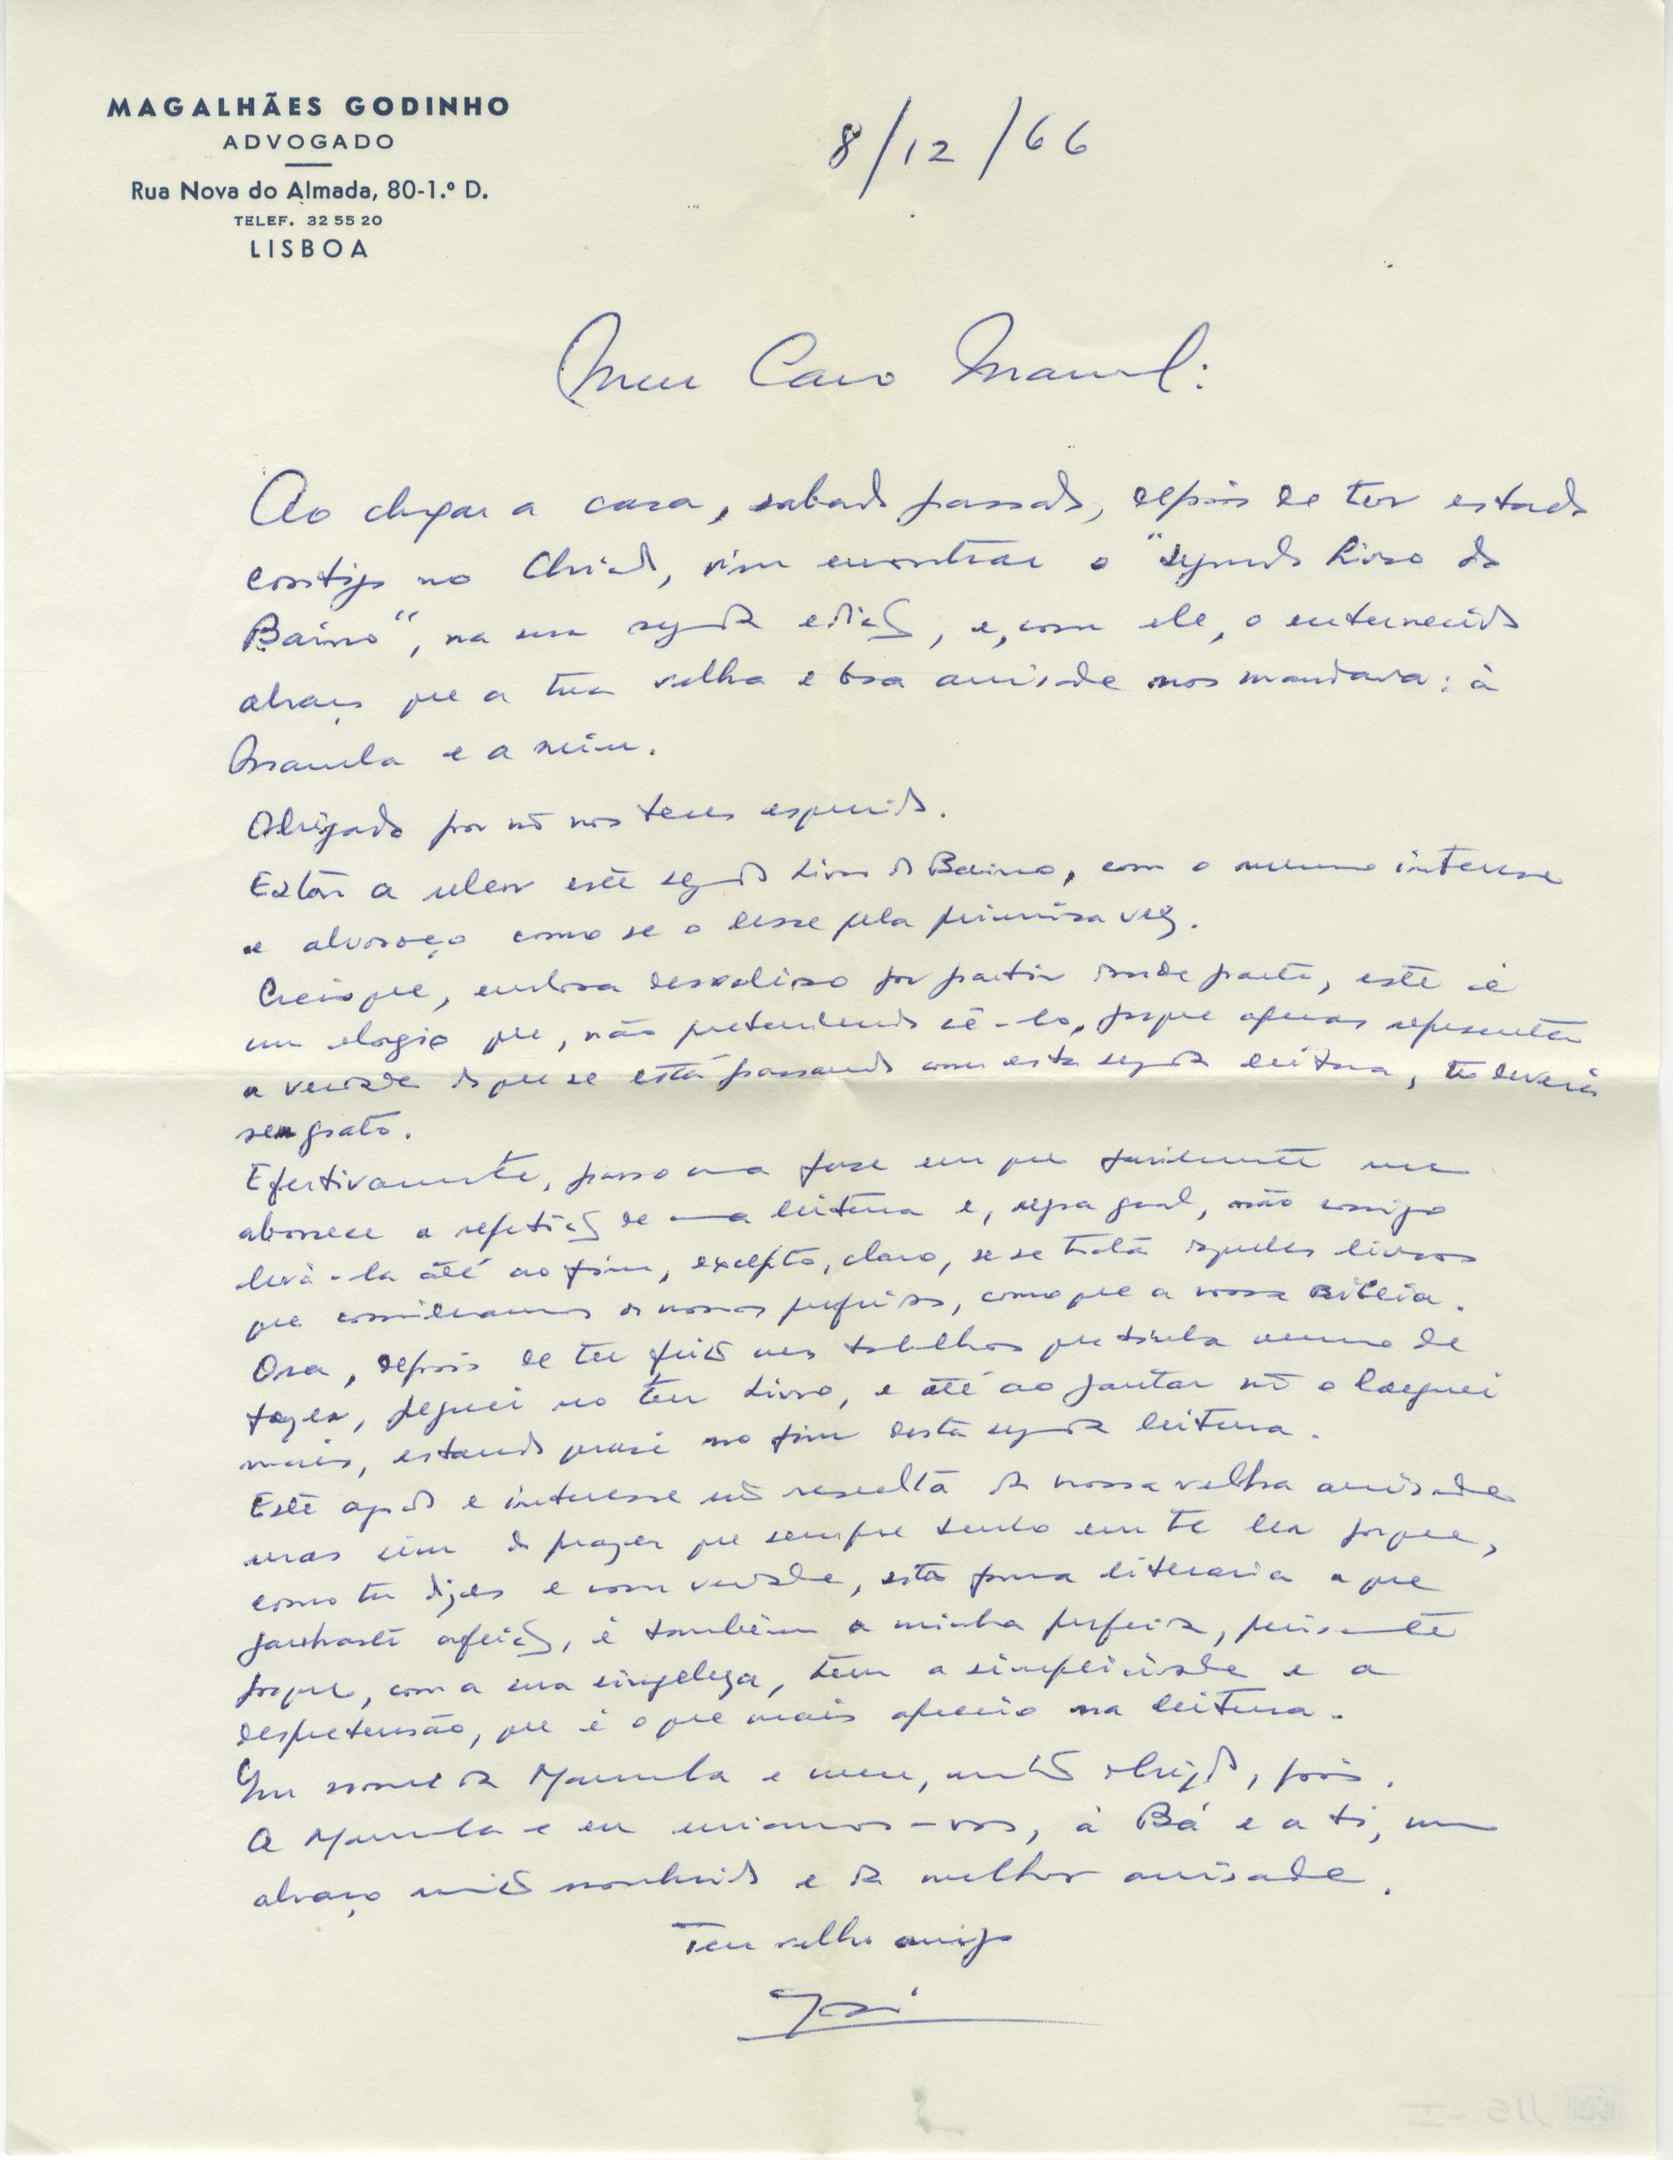 MAGALHÃES GODINHO
ADVOGADO
Rua Nova do Almada, 80-1.º D.
TELEF. 32 55 20
LISBOA
8/12/66
Meu Caro Manuel:
Ao chegar a casa, sabado passado, depois de ter estado
contigo no Chiado, vim encontrar o "segundo Livro do
Bairro", na sua segunda edição, e, com ele, o enternecido
abraço que a tua velha e boa amisade nos mandava: à
Manuela e a mim.
Obrigado por não nos teres esquecido.
Estou a reler este segundo Livro do Bairro, com o mesmo interesse
e alvoroço como se o lesse pela primeira vez.
Creio que, embora desvalioso por partir donde parte, este é
um elogio que, não pretendendo sê-lo, porque apenas representa
a verdade do que se está passando com esta segunda leitura, te deverá
ser grato.
Efectivamente, passo uma fase em que facilmente me
aborrece a repetição de uma leitura e, regra geral, não consigo
levá-la até ao fim, excepto, claro, se se trata daqueles livros
que consideramos os nossos preferidos, como que a nossa Biblia.
Ora, depois de ter feito uns trabalhos que tinha mesmo de
fazer, peguei no teu Livro, e até ao jantar não o larguei
mais, estando quase no fim desta segunda leitura.
Este agrado e interesse não resulta da nossa velha amisade
mas sim do prazer que sempre tenho em te ler porque,
como tu dizes e com verdade, esta forma literaria a que
ganhaste afeição, é também a minha preferida, precisamente
porque, com a sua singeleza, tem a simplicidade e a
despretensão, que é o que mais aprecio na leitura.
Em nome da Manuela e meu, muito obrigado, pois.
A Manuela e eu enviamos-vos, à Bá e a ti, um
abraço muito reconhecido e da melhor amisade.
Teu velho amigo
José